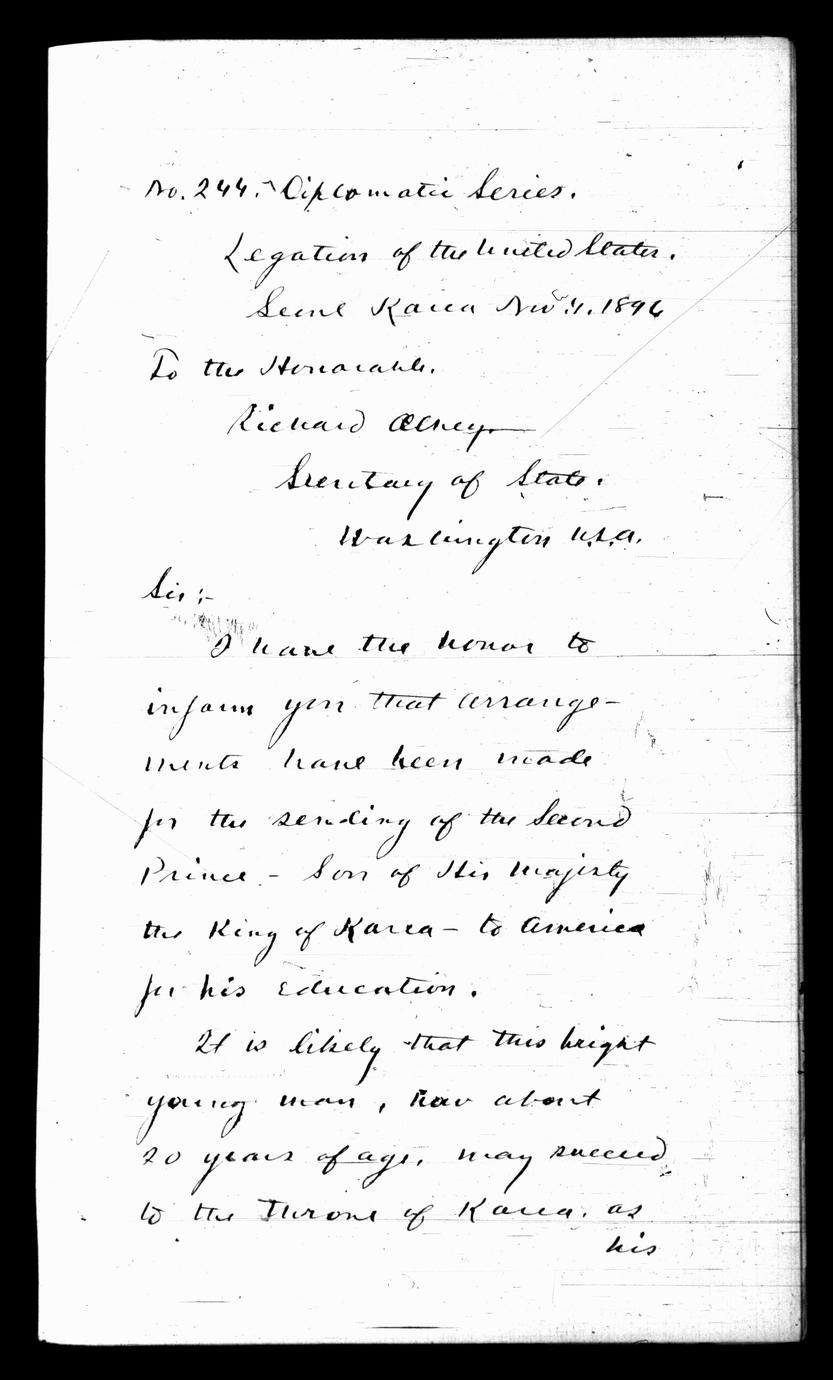 No. 244. Diplomatic Series.
Legation of the United States.
Seoul Korea Nov. 4. 1896
To the Honorable.
Richard Olney
Secretary of State.
Washington U.S.A.
Sir:-
I have the honor to
inform you that arrange-
ments have been made
for the sending of the Second
Prince - Son of His Majesty
the King of Korea - to America
for his education.
It is likely that this bright
young man, now about
20 years of age, may succeed
to the Throne of Korea. as
his